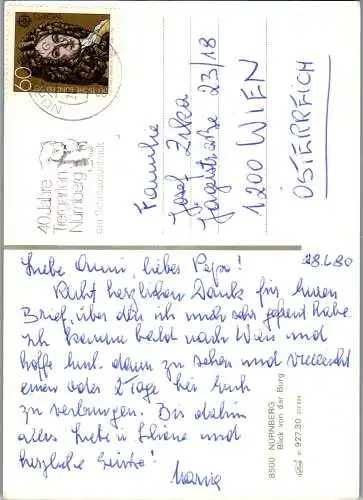 60
DEUTSCHE BUNDESPOST
EUROPA
40 Jahre
Tiergarten
Nürnberg
am Schmausenbuck
Familie
Josef Zirka
Jägerstraße 23/18
1200 WIEN
ÖSTERREICH
28.6.80
Liebe Omi, lieber Papa!
Recht herzlichen Dank für Euren
Brief, über den ich mich sehr gefreut habe.
Ich komme bald nach Wien und
hoffe Euch dann zu sehen und vielleicht
einen oder 2 Tage bei Euch
zu verbringen. Bis dahin
alles Liebe u.
herzliche Grüße!
Maria
8500 NÜRNBERG
Blick von der Burg
927.30